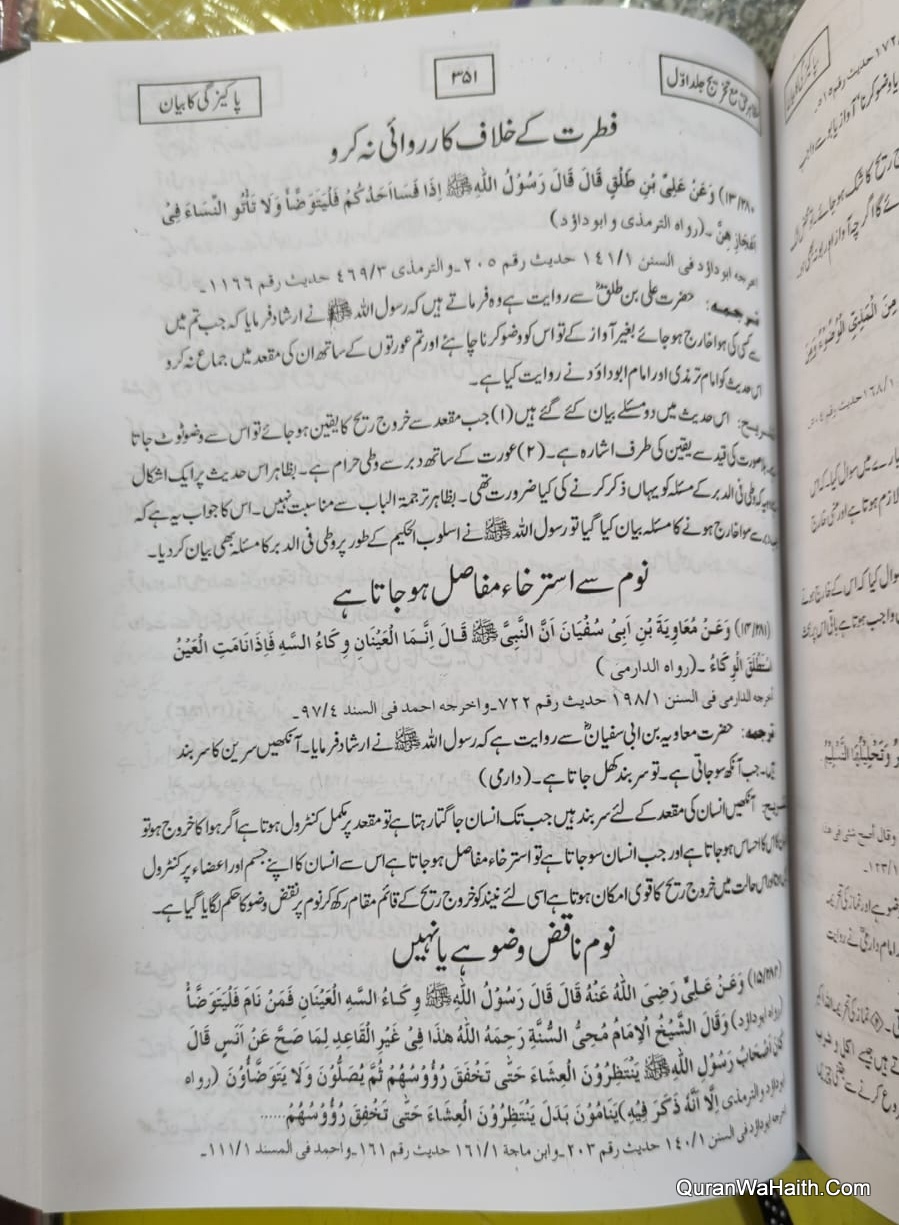 پاکیزگی کا بیان
۳۵۱
مع تخریج جلد اوّل
فطرت کے خلاف کارروائی نہ کرو
۱۳/۲۸۰) وَعَنْ عَلِيِّ بْنِ طَلْقٍ قَالَ قَالَ رَسُوْلُ اللّٰهِ ﷺ اِذَا فَسَا اَحَدُكُمْ فَلْيَتَوَضَّأْ وَلَا تَأْتُو النِّسَاءَ فِيْ
اَعْجَازِهِنَّ ۔ (رواه الترمذى و ابوداؤد)
اخرجه ابوداؤد فى السنن ۱۴۱/۱ حديث رقم ۲۰۵۔ والترمذى ۴۶۹/۳ حديث رقم ۱۱۶۶۔
ترجمہ: حضرت علی بن طلقؓ سے روایت ہے وہ فرماتے ہیں کہ رسول اللہ ﷺ نے ارشاد فرمایا کہ جب تم میں
سے کسی کی ہوا خارج ہو جائے بغیر آواز کے تو اس کو وضو کرنا چاہئے اور تم عورتوں کے ساتھ ان کی مقعد میں جماع نہ کرو
اس حدیث کو امام ترمذی اور امام ابوداؤد نے روایت کیا ہے۔
تشریح: اس حدیث میں دو مسئلے بیان کئے گئے ہیں (۱) جب مقعد سے خروج ریح کا یقین ہو جائے تو اس سے وضو ٹوٹ جاتا
صورت کی قید سے یقین کی طرف اشارہ ہے۔ (۲) عورت کے ساتھ دبر سے وطی حرام ہے۔ بظاہر اس حدیث پر ایک اشکال
کہ وطی فی الدبر کے مسئلہ کو یہاں ذکر کرنے کی کیا ضرورت تھی۔ بظاہر ترجمۃ الباب سے مناسبت نہیں۔ اس کا جواب یہ ہے کہ
سے ہوا خارج ہونے کا مسئلہ بیان کیا گیا تو رسول اللہ ﷺ نے اسلوب الحکیم کے طور پر وطی فی الدبر کا مسئلہ بھی بیان کر دیا۔
نوم سے استرخاء مفاصل ہو جاتا ہے
(۱۴/۲۸۱) وَعَنْ مُعَاوِيَةَ بْنِ اَبِىْ سُفْيَانَ اَنَّ النَّبِيَّ ﷺ قَالَ اِنَّمَا الْعَيْنَانِ وِكَاءُ السَّهِ فَاِذَا نَامَتِ الْعَيْنُ
اسْتَطْلَقَ الْوِكَاءُ ۔ (رواه الدارمى)
اخرجه الدارمى فى السنن ۱۹۸/۱ حديث رقم ۷۲۲۔ واخرجه احمد فى السند ۹۷/۴۔
ترجمہ: حضرت معاویہ بن ابی سفیانؓ سے روایت ہے کہ رسول اللہ ﷺ نے ارشاد فرمایا۔ آنکھیں سرین کا سر بند
ہیں۔ جب آنکھ سو جاتی ہے۔ تو سر بند کھل جاتا ہے۔ (دارمی)
تشریح: آنکھیں انسان کی مقعد کے لئے سر بند ہیں جب تک انسان جاگتا رہتا ہے تو مقعد پر مکمل کنٹرول ہوتا ہے اگر ہوا کا خروج ہو تو
اس کا احساس ہو جاتا ہے اور جب انسان سو جاتا ہے تو استرخاء مفاصل ہو جاتا ہے اس سے انسان کا اپنے جسم اور اعضاء پر کنٹرول
اور اس حالت میں خروج ریح کا قوی امکان ہوتا ہے اسی لئے نیند کو خروج ریح کے قائم مقام رکھ کر نوم پر نقض وضو کا حکم لگایا گیا ہے۔
نوم ناقض وضو ہے یا نہیں
(۱۵/۲۸۲) وَعَنْ عَلِيٍّ رَضِيَ اللّٰهُ عَنْهُ قَالَ قَالَ رَسُوْلُ اللّٰهِ ﷺ وِكَاءُ السَّهِ الْعَيْنَانِ فَمَنْ نَامَ فَلْيَتَوَضَّأْ
(رواه ابوداؤد) وَقَالَ الشَّيْخُ الْاِمَامُ مُحِيُّ السُّنَّةِ رَحِمَهُ اللّٰهُ هٰذَا فِىْ غَيْرِ الْقَاعِدِ لِمَا صَحَّ عَنْ اَنَسٍ قَالَ
كَانَ اَصْحَابُ رَسُوْلِ اللّٰهِ ﷺ يَنْتَظِرُوْنَ الْعِشَاءَ حَتّٰى تَخْفَقَ رُؤُوْسُهُمْ ثُمَّ يُصَلُّوْنَ وَلَا يَتَوَضَّأُوْنَ (رواه
ابوداؤد والترمذى اِلَّا اَنَّهٗ ذَكَرَ فِيْهِ) يَنَامُوْنَ بَدَلَ يَنْتَظِرُوْنَ الْعِشَاءَ حَتّٰى تَخْفِقَ رُؤُوْسُهُمْ......
اخرجه ابوداؤد فى السنن ۱۴۰/۱ حديث رقم ۲۰۳۔ وابن ماجة ۱۶۱/۱ حديث رقم ۱۶۱۔ واحمد فى المسند ۱۱۱/۱۔
QuranWaHaith.Com